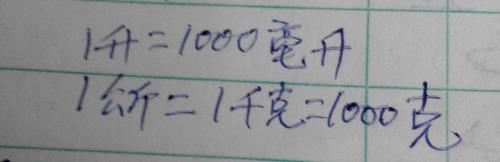 1升=1000毫升
1公斤=1千克=1000克